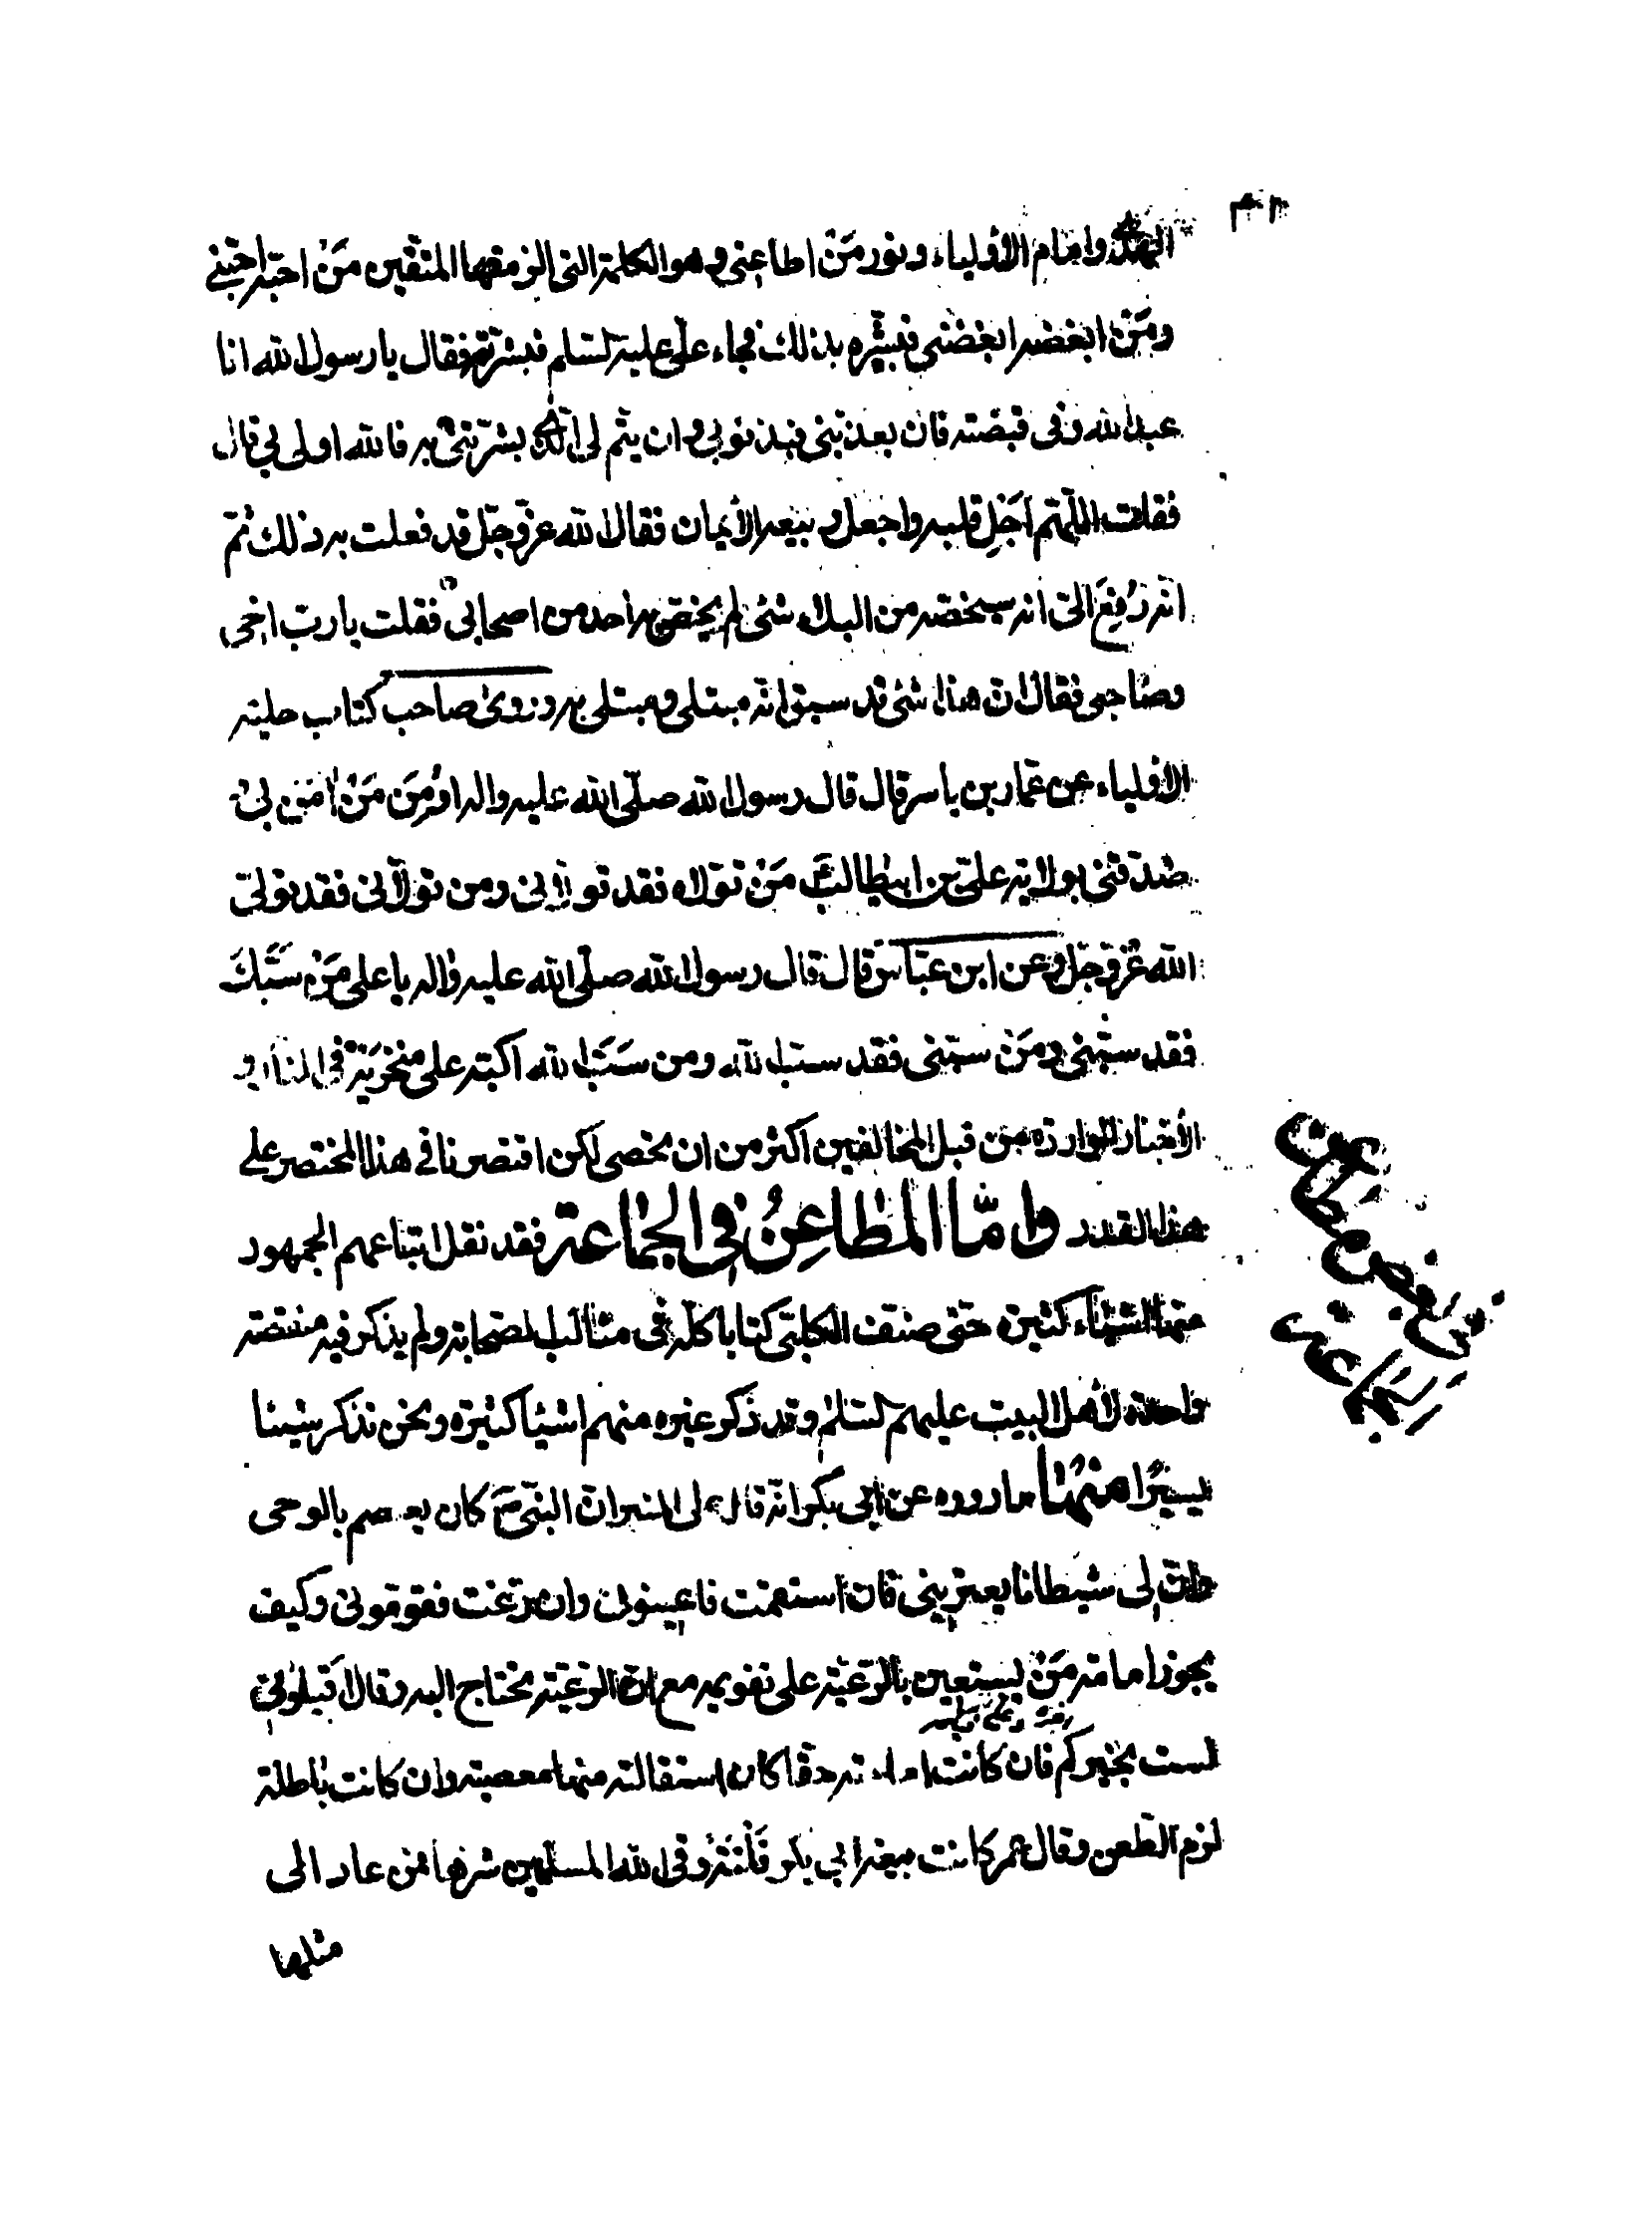 الهدى وامام الأولياء ونور من اطاعنى وهو الكلمة التى الزمتها المتقين من احبه احبنى
ومن ابغضه ابغضنى فبشره بذلك فجاء على عليه السلام فبشرته فقال يا رسول الله انا
عبد الله وفى قبضته فان يعذبنى فبذنوبى وان يتم لى الذى بشرتنى به فالله اولى بى قال
فقلت اللهم اجل قلبه واجعل ربيعه الأيمان فقال الله عز وجل قد فعلت به ذلك ثم
انه رفع الى انه سيخصه من البلاء شئ لم يخص به احد من اصحابى فقلت يا رب اخى
وصاحبى فقال ان هذا شئ قد سبق انه مبتلى ومبتلى به وروى صاحب كتاب حلية
الأولياء عن عمار بن ياسر قال قال رسول الله صلى الله عليه واله اومن من امن بى
صدقنى بولاية على بن ابيطالب ع من تولاه فقد تولانى ومن تولانى فقد تولى
الله عز وجل وعن ابن عباس قال قال رسول الله صلى الله عليه واله يا على من سبك
فقد سبنى ومن سبنى فقد سب الله ومن سب الله اكبه على منخريه فى النار و
الأخبار الواردة من قبل المخالفين اكثر من ان يحصى لكن اقتصرنا فى هذا المختصر على
هذا القدر واما المطاعن فى الجماعة فقد نقل اتباعهم الجمهور
منها اشياء كثيرة حتى صنف الكلبى كتابا كله فى مثالب الصحابة ولم يذكر فيه منقصة
واحدة لأهل البيت عليهم السلام وقد ذكر غيره منهم اشيا كثيرة ونحن نذكر شيئا
يسيرا منها ما رووه عن ابى بكر انه قال على المنبر ان النبى ص كان يعصم بالوحى
وان لى شيطانا يعترينى فان استقمت فاعينونى وان زغت فقومونى وكيف
يجوز امامة من يستعين بالرعية على تقويمه مع ان الرعية تحتاج اليه وقال اقيلونى
لست بخيركم فان كانت امامته حقا كان استقالته منها معصية وان كانت باطلة
لزم الطعن وقال عمر كانت بيعة ابى بكر فلتة وقى الله المسلمين شرها فمن عاد الى
مثلها
فى بعض مطاعن
الجماعة